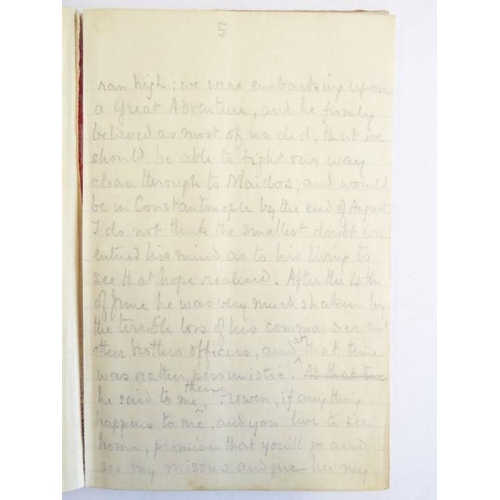 5
ran high: we were embarking upon
a Great Adventure, and he firmly
believed as most of us did, that we
should be able to fight our way
clean through to Maidos, and would
be in Constantinople by the end of August.
I do not think the smallest doubt
entered his mind as to his living to
see that hope realised. After the 4th
of June he was very much shaken by
the terrible loss of his commander and
other brother officers, and at that time
was rather pessimistic. At that time
he said to me then, if anything
happens to me, and you live to see
home, promise that you'll go and
see my missus and give her my